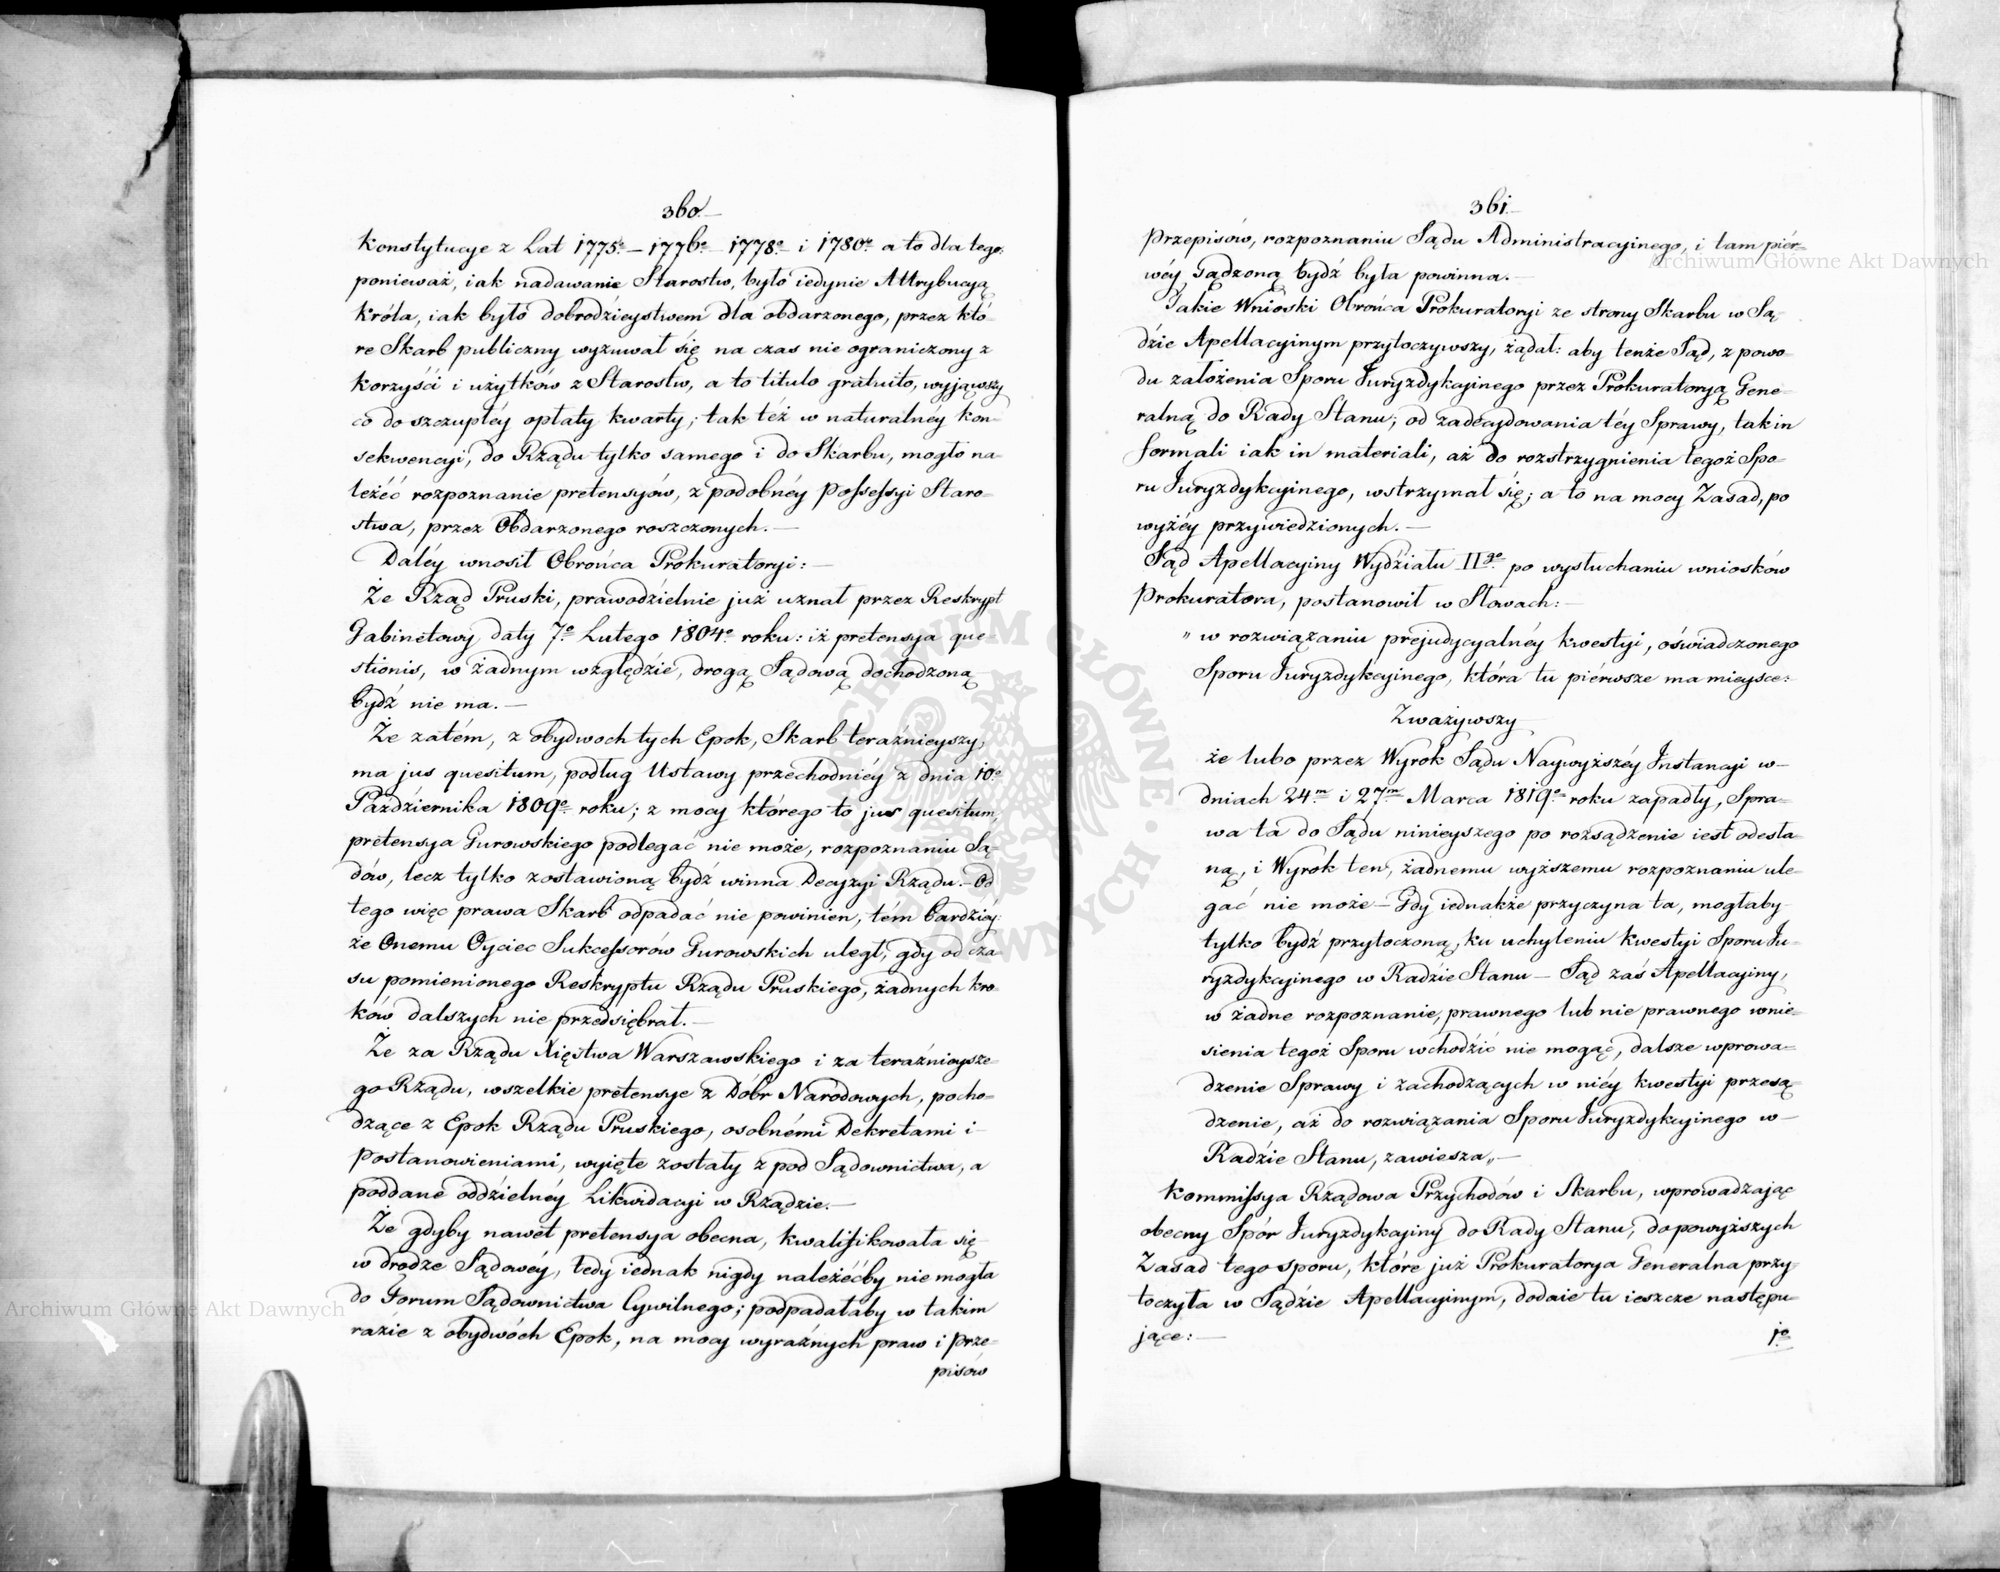 360.
Konstytucye z Lat 1775.o – 1776.o 1778.o i 1780.o a to dla tego:
ponieważ, iak nadawanie Starostw, było iedynie Attrybucyą
Króla, iak było dobrodzieystwem dla obdarzonego, przez któ=
re Skarb publiczny wyzuwał się na czas nie ograniczony z
korzyści i użytków z Starostw, a to titulo gratuito, wyjąwszy
co do szczupłéy opłaty kwarty; tak téż w naturalnéy kon=
sekwencyi, do Rządu tylko samego i do Skarbu, mogło na=
leżéć rozpoznanie pretensyów, z podobnéy Possessyi Staro=
stwa, przez Obdarzonego roszczonych. —
Daléy wnosił Obrońca Prokuratoryi: —
Że Rząd Pruski, prawodzielnie już uznał przez Reskrypt
Gabinetowy daty 7.o Lutego 1804.o roku: iż pretensya que=
stionis, w żadnym względzie, drogą Sądową dochodzoną
bydź nie ma. —
Że zatém, z obydwoch tych Epok, Skarb teraźnieyszy,
ma jus quesitum, podług Ustawy przechodniéy z dnia 10.o
Października 1809.o roku; z mocy którego to jus quesitum,
pretensya Gurowskiego podlegać nie może, rozpoznaniu Są=
dów, lecz tylko zostawioną bydź winna Decyzyi Rządu. – Od
tego więc prawa Skarb odpadać nie powinien, tém bardziéy:
że Onemu Oyciec Sukcessorów Gurowskich uległ, gdy od cza=
su pomienionego Reskryptu Rządu Pruskiego, żadnych kro=
ków dalszych nie przedsiębrał. —
Że za Rządu Xięstwa Warszawskiego i za teraźnieysze=
go Rządu, wszelkie pretensye z Dóbr Narodowych, pocho=
dzące z Epok Rządu Pruskiego, osobnémi Dekretami i
Postanowieniami, wyięte zostały z pod Sądownictwa, a
poddane oddzielnéy Likwidacyi w Rządzie. —
Że gdyby nawet pretensya obecna, kwalifikowała się
w drodze Sądowéy, tedy iednak nigdy należéćby nie mogła
do Forum Sądownictwa Cywilnego; podpadałaby w takim
razie z obydwóch Epok, na mocy wyraźnych praw i prze=
pisów
361.
Przepisów, rozpoznaniu Sądu Administracyinego, i tam piér=
wéy Sądzoną bydź była powinna. —
Takie Wnioski Obrońca Prokuratoryi ze strony Skarbu w Są=
dzie Apellacyinym przytoczywszy, żądał: aby tenże Sąd, z powo=
du założenia Sporu Juryzdykcyinego przez Prokuratoryą Gene=
ralną do Rady Stanu; od zadecydowania téy Sprawy, tak in
formali iak in materiali, aż do rozstrzygnienia tegoż Spo=
ru Juryzdykcyinego, wstrzymał się; a to na mocy Zasad, po
wyżéy przywiedzionych. —
Sąd Apellacyiny Wydziału II.go po wysłuchaniu wniosków
Prokuratora, postanowił w Słowach: —
" w rozwiązaniu prejudycyalnéy kwestyi, oświadczonego
Sporu Juryzdykcyinego, która tu piérwsze ma mieysce:
Zważywszy
że lubo przez Wyrok Sądu Naywyższéy Instancyi w —
dniach 24.m i 27.m Marca 1819.o roku zapadły, Spra=
wa ta do Sądu ninieyszego po rozsądzenie iest odesła=
ną, i Wyrok ten, żadnemu wyższemu rozpoznaniu ule=
gać nie może – Gdy iednakże przyczyna ta, mogłaby
tylko bydź przytoczoną, ku uchyleniu kwestyi Sporu Ju=
ryzdykcyinego w Radzie Stanu – Sąd zaś Apellacyiny,
w żadne rozpoznanie, prawnego lub nie prawnego wnie=
sienia tegoż Sporu wchodzić nie mogąc, dalsze wprowa=
dzenie Sprawy i zachodzących w niéy kwestyi przesą=
dzenie, aż do rozwiązania Sporu Juryzdykcyinego w —
Radzie Stanu, zawiesza„ —
Kommissya Rządowa Przychodów i Skarbu, wprowadzaiąc
obecny Spór Juryzdykcyiny do Rady Stanu, do powyższych
Zasad tego sporu, które już Prokuratorya Generalna przy=
toczyła w Sądzie Apellacyinym, dodaie tu ieszcze następu=
jące: —
1.o
Archiwum Główne Akt Dawnych
Archiwum Główne Akt Dawnych
ARCHIWUM GŁÓWNE AKT DAWNYCH